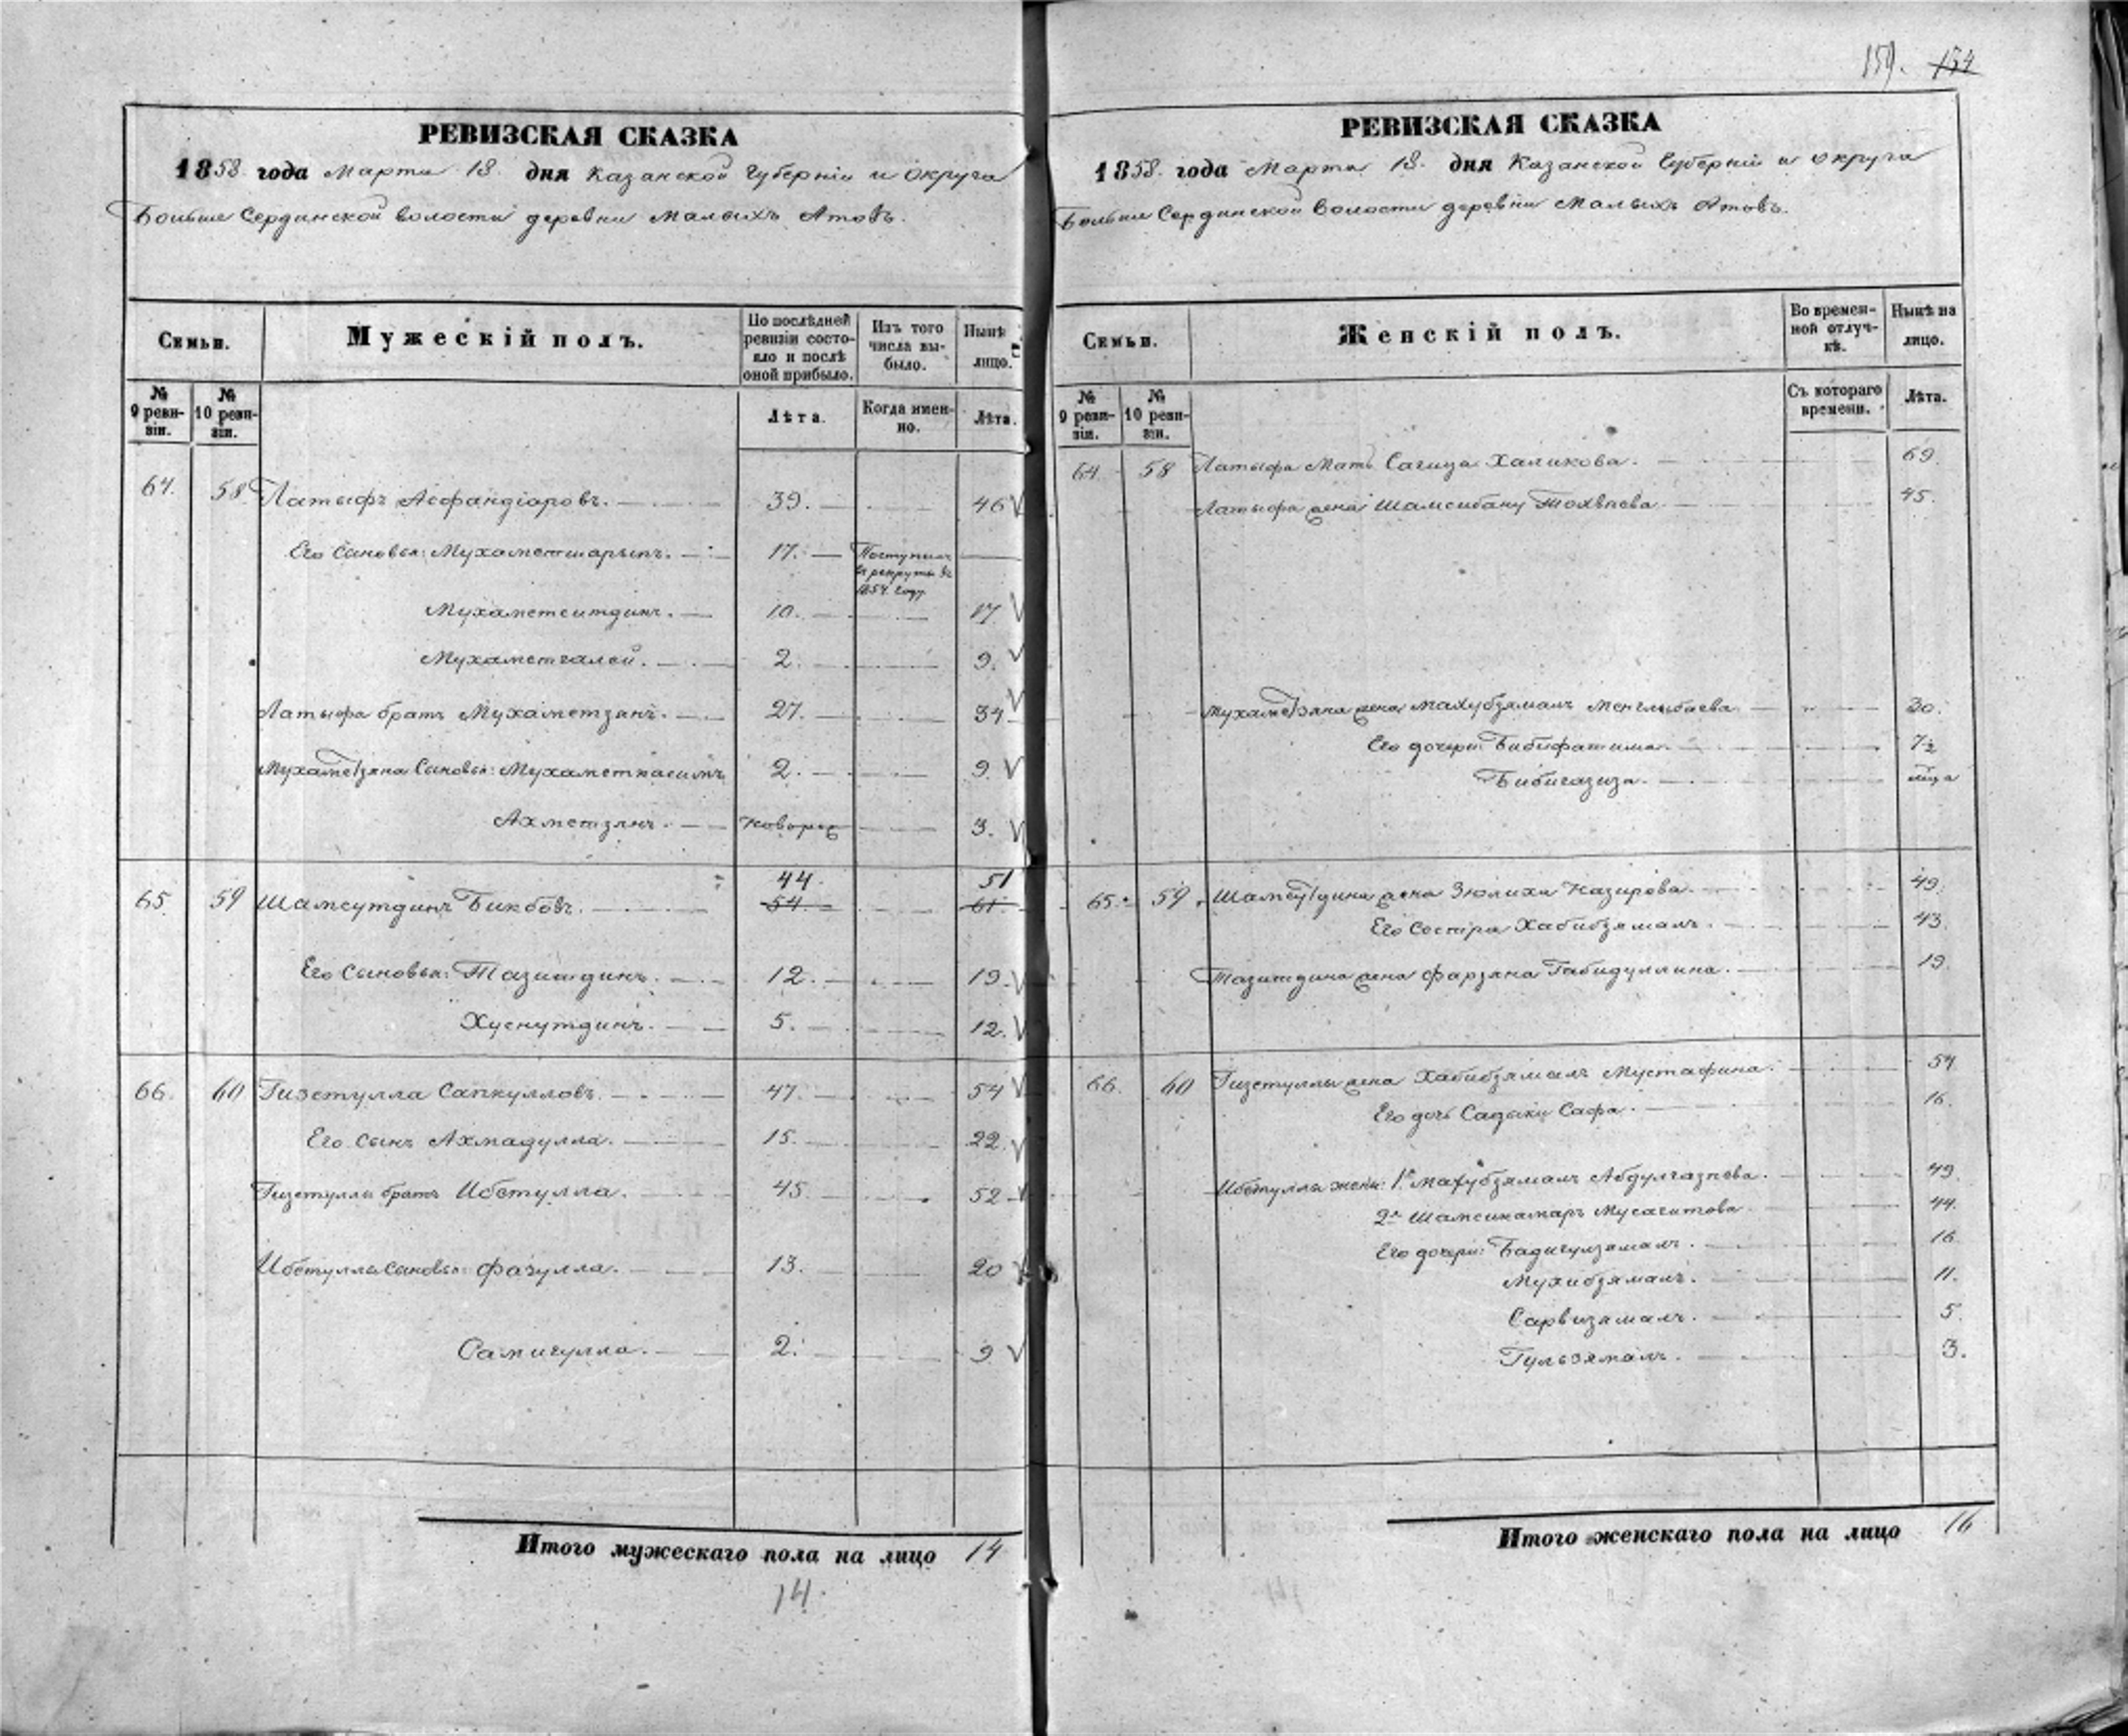 РЕВИЗСКАЯ СКАЗКА
1858 года Марта 18. дня Казанской Губерніи и округа
Больше Сердинской волости деревни Малыхъ Атовъ.
Семьи.
Мужескій полъ.
По послѣдней ревизіи состояло и послѣ оной прибыло.
Изъ того числа выбыло.
Нынѣ лицо.
№ 9 ревизіи.
№ 10 ревизіи.
Лѣта.
Когда именно.
Лѣта.
64. 58 Латыфъ Асфандіаровъ. 39. 46
Его сыновья: Мухаметшарыпъ. 17. Поступилъ в рекруты въ 1854. году
Мухаметситдинъ. 10. 17
Мухаметгалей. 2. 9.
Латыфа братъ Мухаметзянъ. 27. 34
Мухаметзяна сыновья: Мухаметкасимъ 2. 9
Ахметзянъ. новорож 3.
44. 51
65. 59 Шамсутдинъ Бикбовъ. 54. 61.
Его сыновья: Тазитдинъ. 12. 19
Хуснутдинъ. 5. 12.
66. 60 Гизетулла Сапкулловъ. 47. 54
Его сынъ Ахмадулла. 15. 22.
Гизетуллы братъ Ибетулла. 45 52
Ибетуллы сыновья: Фазулла. 13. 20
Самигулла. 2. 9
Итого мужескаго пола на лицо 14
14.
159. 154
РЕВИЗСКАЯ СКАЗКА
1858. года Марта 18. дня Казанской Губерніи и округа
Больше Сердинской волости деревни Малыхъ Атовъ.
Семьи.
Женскій полъ.
Во временной отлучкѣ.
Нынѣ на лицо.
№ 9 ревизіи.
№ 10 ревизіи.
Съ котораго времени.
Лѣта.
64 58 Латыфа мать Сагида Халикова. 69.
Латыфа жена Шамсибану 45.
Мухаметзяна жена Махубзямалъ Менглыбаева 30.
Его дочери: Бибифатима. 7½
Бибигазиза.
65. 59. Шамсутдина жена Зюлиха Назирова. 49.
Его сестра Хабибзямалъ. 43.
Тазитдина жена Фарзяна Габидуллина. 19.
66. 60 Гизетуллы жена Хабибзямалъ Мустафина. 54.
Его дочь Садыки Сафа. 16.
Ибетуллы жены: 1я Махубзямалъ 49.
2я Шамсикамаръ Мусагитова 44.
Его дочери: Бадигулзямалъ. 16
Мухибзямалъ. 11.
Сарвизямалъ. 5.
Гульзямалъ. 3.
Итого женскаго пола на лицо 16